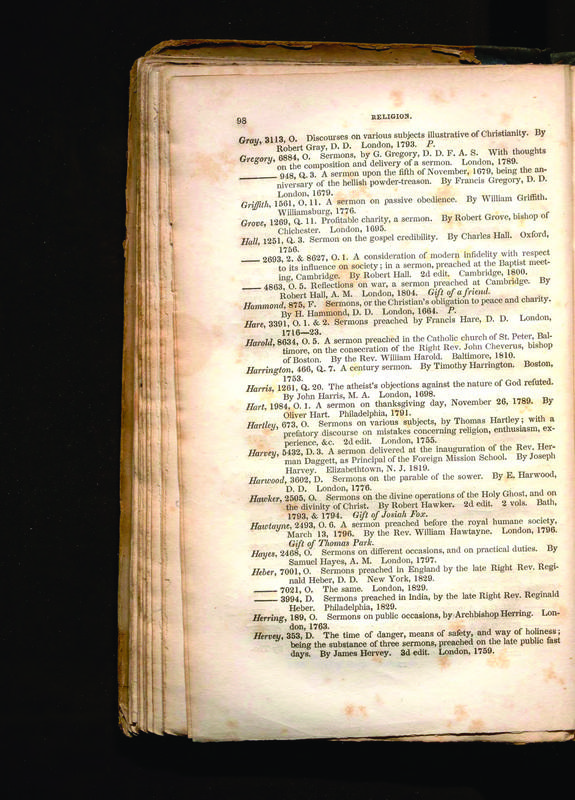 98
RELIGION.
Gray, 3113, O. Discourses on various subjects illustrative of Christianity. By
Robert Gray, D. D. London, 1793. P.
Gregory, 6884, O. Sermons, by G. Gregory, D. D. F. A. S. With thoughts
on the composition and delivery of a sermon. London, 1789.
——— 948, Q. 3. A sermon upon the fifth of November, 1679, being the an-
niversary of the hellish powder-treason. By Francis Gregory, D. D.
London, 1679.
Griffith, 1561, O. 11. A sermon on passive obedience. By William Griffith.
Williamsburg, 1776.
Grove, 1269, Q. 11. Profitable charity, a sermon. By Robert Grove, bishop of
Chichester. London, 1695.
Hall, 1251, Q. 3. Sermon on the gospel credibility. By Charles Hall. Oxford,
1756.
—— 2693, 2. & 8627, O. 1. A consideration of modern infidelity with respect
to its influence on society; in a sermon, preached at the Baptist meet-
ing, Cambridge. By Robert Hall. 2d edit. Cambridge, 1800.
—— 4863, O. 5. Reflections on war, a sermon preached at Cambridge. By
Robert Hall, A. M. London, 1804. Gift of a friend.
Hammond, 875, F. Sermons, or the Christian's obligation to peace and charity.
By H. Hammond, D. D. London, 1664. P.
Hare, 3391, O. 1. & 2. Sermons preached by Francis Hare, D. D. London,
1716—23.
Harold, 8634, O. 5. A sermon preached in the Catholic church of St. Peter, Bal-
timore, on the consecration of the Right Rev. John Cheverus, bishop
of Boston. By the Rev. William Harold. Baltimore, 1810.
Harrington, 466, Q. 7. A century sermon. By Timothy Harrington. Boston,
1753.
Harris, 1261, Q. 20. The atheist's objections against the nature of God refuted.
By John Harris, M. A. London, 1698.
Hart, 1984, O. 1. A sermon on thanksgiving day, November 26, 1789. By
Oliver Hart. Philadelphia, 1791.
Hartley, 673, O. Sermons on various subjects, by Thomas Hartley; with a
prefatory discourse on mistakes concerning religion, enthusiasm, ex-
perience, &c. 2d edit. London, 1755.
Harvey, 5432, D. 3. A sermon delivered at the inauguration of the Rev. Her-
man Daggett, as Principal of the Foreign Mission School. By Joseph
Harvey. Elizabethtown, N. J. 1819.
Harwood, 3602, D. Sermons on the parable of the sower. By E. Harwood,
D. D. London, 1776.
Hawker, 2505, O. Sermons on the divine operations of the Holy Ghost, and on
the divinity of Christ. By Robert Hawker. 2d edit. 2 vols. Bath,
1793, & 1794. Gift of Josiah Fox.
Hawtayne, 2493, O. 6. A sermon preached before the royal humane society,
March 13, 1796. By the Rev. William Hawtayne. London, 1796.
Gift of Thomas Park.
Hayes, 2468, O. Sermons on different occasions, and on practical duties. By
Samuel Hayes, A. M. London, 1797.
Heber, 7001, O. Sermons preached in England by the late Right Rev. Regi-
nald Heber, D. D. New York, 1829.
—— 7021, O. The same. London, 1829.
—— 3994, D. Sermons preached in India, by the late Right Rev. Reginald
Heber. Philadelphia, 1829.
Herring, 189, O. Sermons on public occasions, by Archbishop Herring. Lon-
don, 1763.
Hervey, 353, D. The time of danger, means of safety, and way of holiness;
being the substance of three sermons, preached on the late public fast
days. By James Hervey. 3d edit. London, 1759.